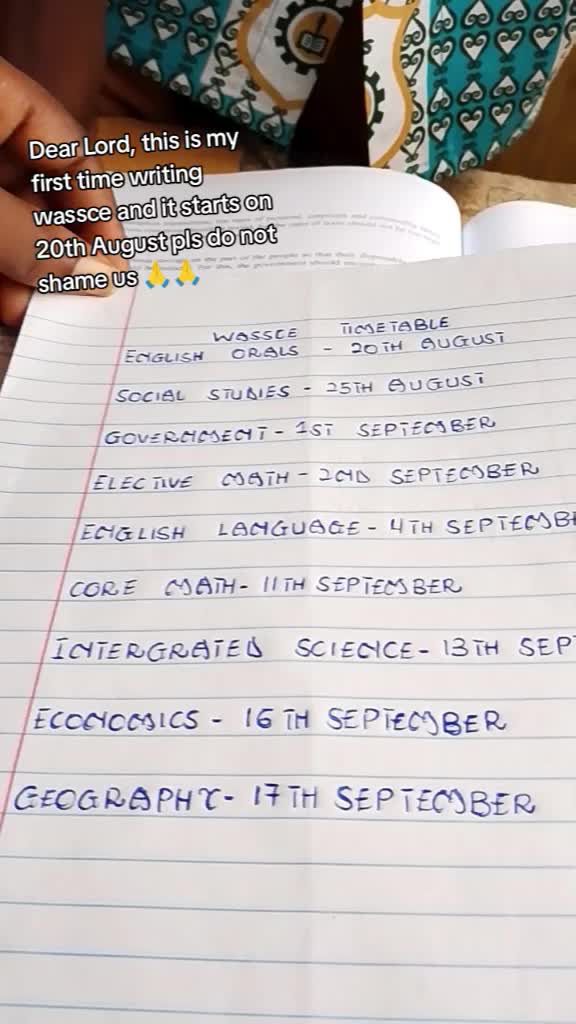 Dear Lord, this is my
first time writing
wassce and it starts on
20th August pls do not
shame us 🙏🙏
WASSCE TIMETABLE
ENGLISH ORALS - 20TH AUGUST
SOCIAL STUDIES - 25TH AUGUST
GOVERNMENT - 1ST SEPTEMBER
ELECTIVE MATH - 2ND SEPTEMBER
ENGLISH LANGUAGE - 4TH SEPTEMB
CORE MATH - 11TH SEPTEMBER
INTERGRATED SCIENCE - 13TH SEPT
ECONOMICS - 16TH SEPTEMBER
GEOGRAPHY - 17TH SEPTEMBER